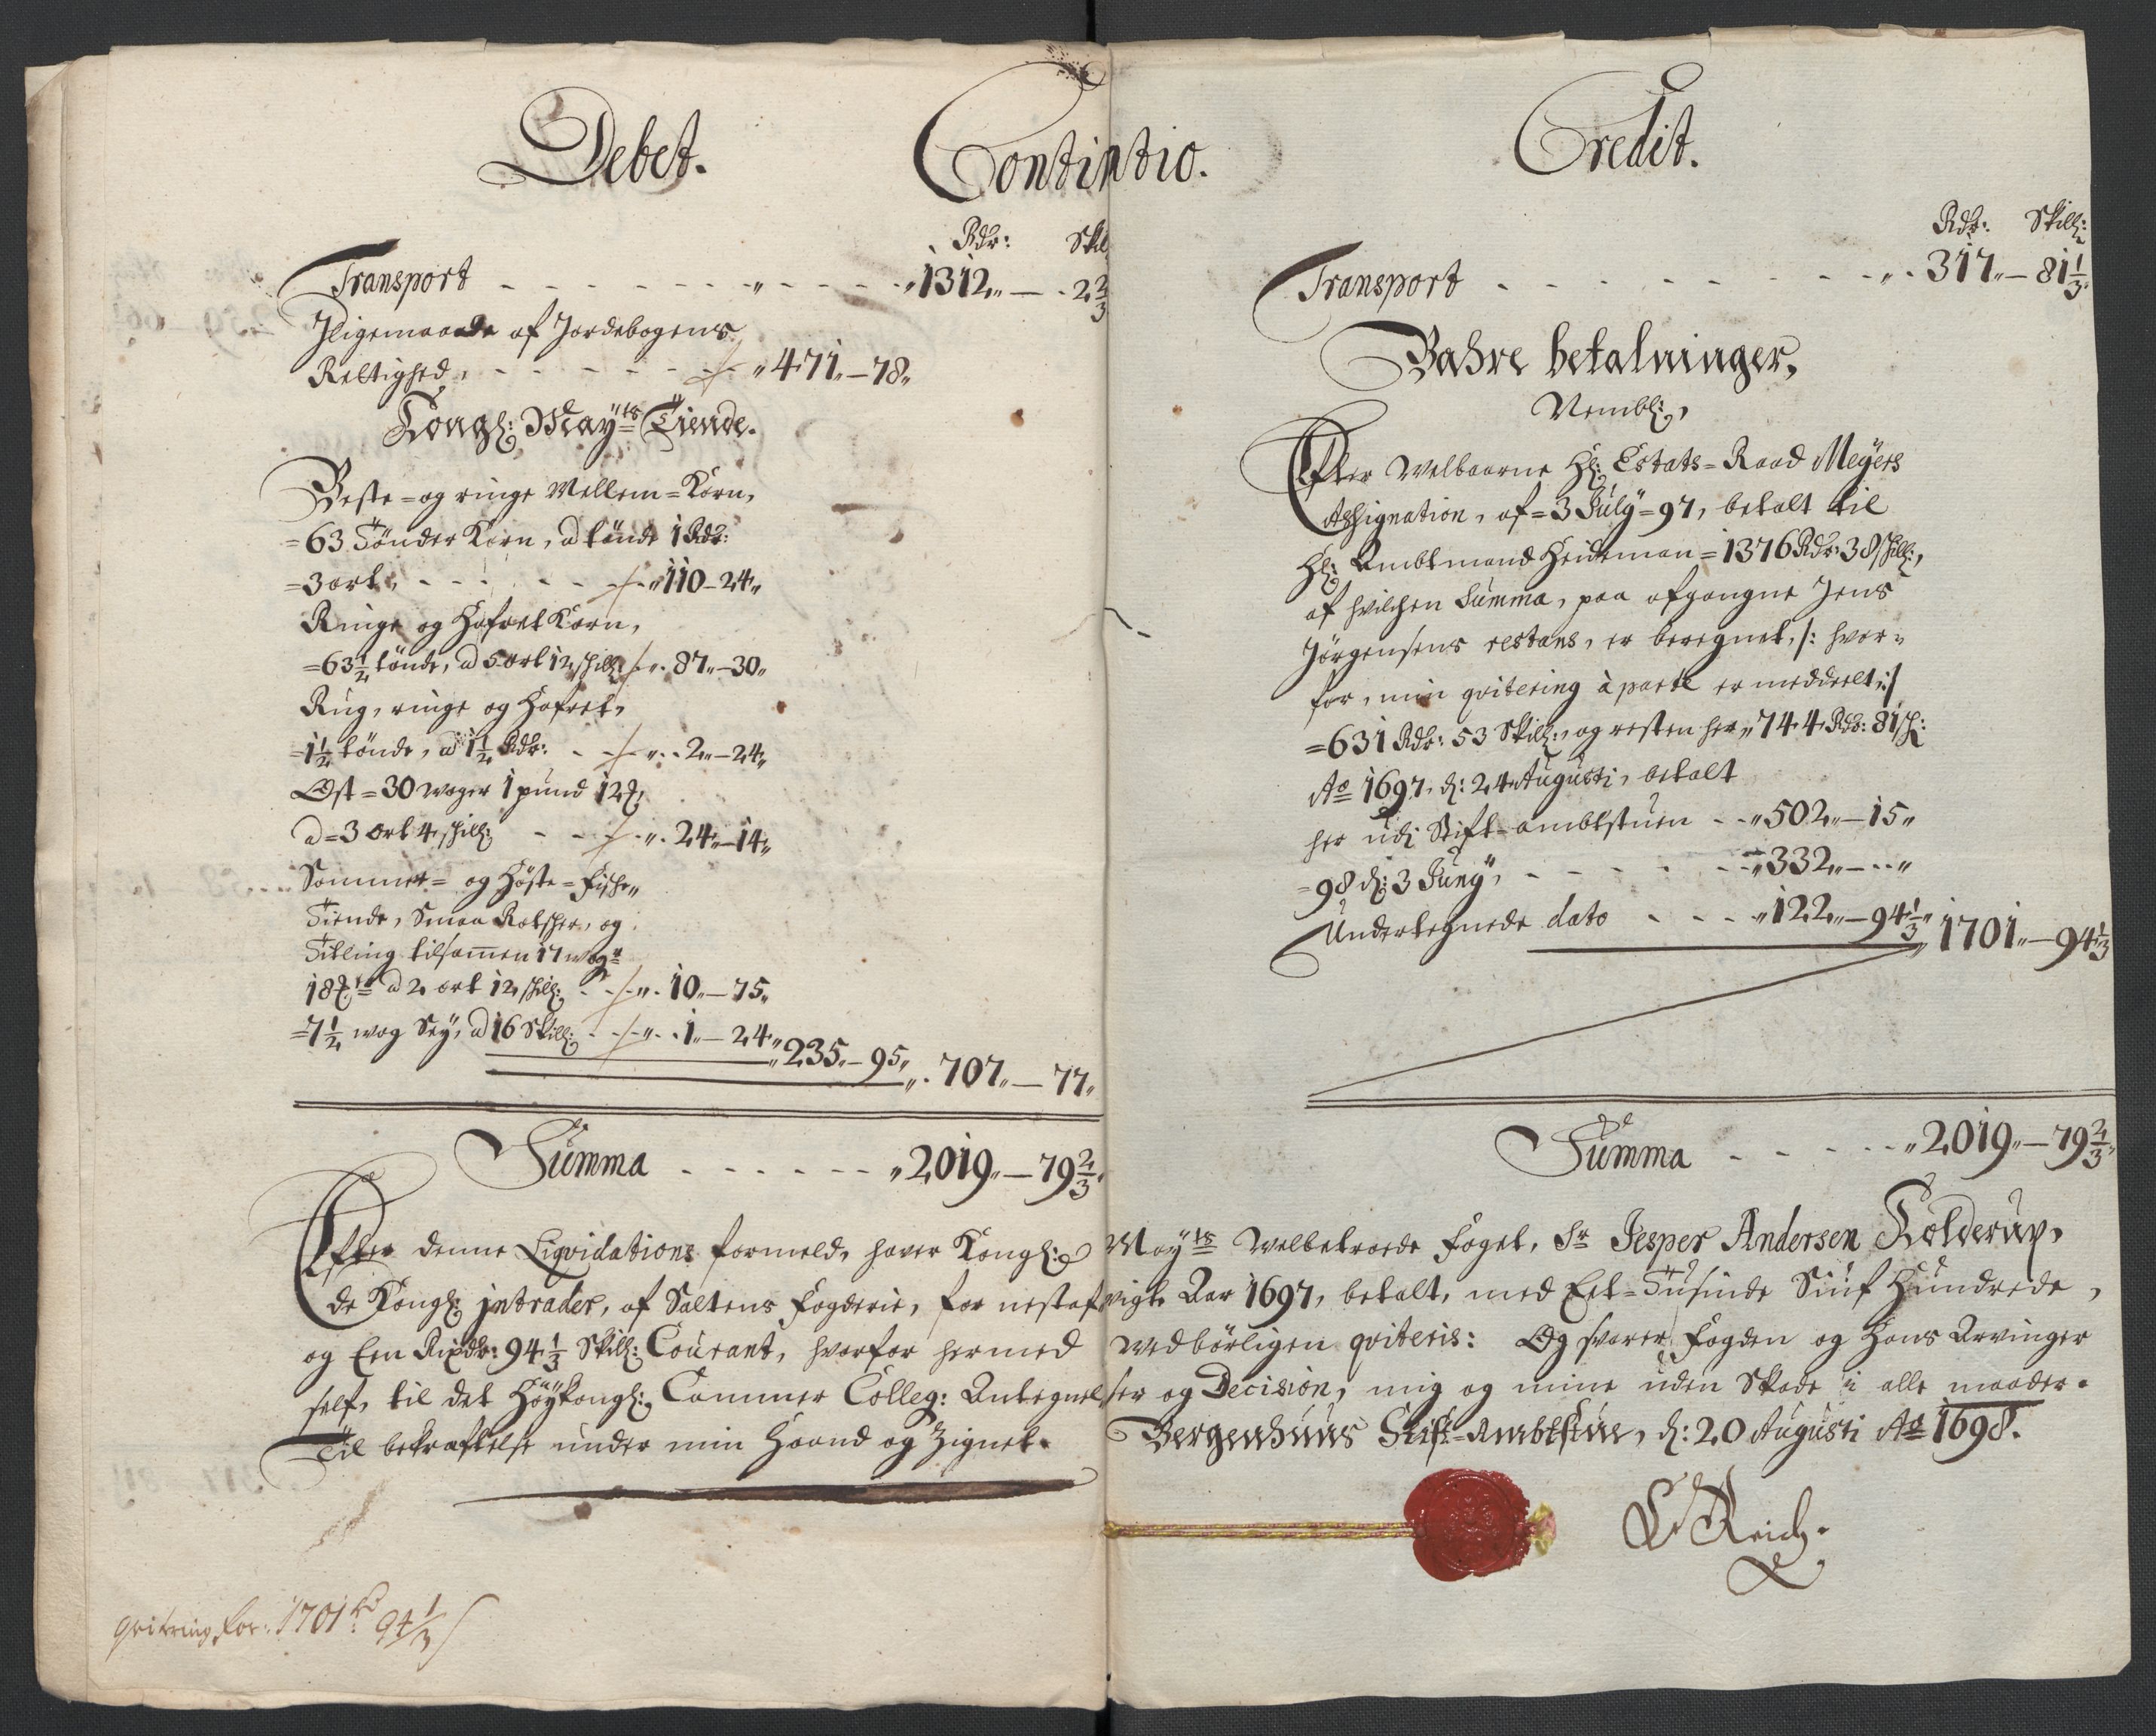 Debet.
Continuatio.
Rdr: Skil
Transport - - - - - - - - - - 1312,, — - 2 2/3
Iligemaade af Jordebogens
Rettighed, - - - - - - - ,, 471,, — 78,,
Kongl: Mayts Tiende.
Beste = og ringe Mellem = Korn,
= 63 Tönder Korn, a tönde 1 Rdr:
= 3 ort, - - - - - ,, 110 — 24,,
Ringe og Hafret Korn,
= 63 1/2 tönde, a 5 ort 12 skill: - ,, 87,, — 30,,
Rug, ringe og Hafret,
= 1 1/2 tönde, a 1 1/2 Rdr: - - ,, - 2,, — 24,,
Ost = 30 woger 1 pund 12 ℔,
a = 3 ort 4 skill: - - - ,, 24,, — 14,,
Sommer = og Höste = Fiske,,
Tiende, Smaa Rotskær, og
Titling tilsammen 17 wogr
18 ℔r a 2 ort 12 skill: - - ,, 10,, — 75,,
= 7 1/2 wog Sey, a 16 Skill: - - ,, - 1,, — 24,, ,, 235,, — 95,, ,, 707,, — 77,,
Summa - - - - - - ,, 2019,, — 79 2/3
Credit.
Rdr: Skill:
Transport - - - - - - - - - ,, 317,, — 81 1/3
Bahre betalninger,
Nembl:,
Efter Welbaarne Hl: Estats = Raad Meyers
Assignation, af = 3 July = 97, betalt til
Hl: Ambtmand Heideman = 1376 Rdr: 38 skill:,
af hvilchen Summa, paa afgangne Jens
Jörgensens restans, er beregnet, /: hvor =
for, min qvitering à parte er meddeelt :/
= 631 Rdr: 53 Skill:, og resten her, 744 Rdr: 81 s:
Ao 1697, d: 24 Augusti, betalt
her udi Stift-ambtstuen - - ,, 502,, — 15,,
= 98 d: 3 Juny, - - - - - - ,, 332,, — - - ,,
Undertegnede dato - - - - ,, 122,, — 94 1/3,, ,, 1701,, — 94 1/3
Summa - - - - - ,, 2019,, — 79 2/3,,
Efter denne Liqvidations formeld, haver Kongl: Mayts Welbetroede Foget, Sr Jesper Andersen Kolderup,
de Kongl: intrader, af Saltens Fogderie, for nestafvigte Aar 1697, betalt, med Eet = Tusinde Siuf Hundrede,
og Een Rixdr: 94 1/3 Skill: Courant, hvorfor hermed wedbörligen qviteris: Og svarer Fogden og Hans Arvinger
self, til det Höykongl: Cammer Colleg: Antegnelser og Decision, mig og mine uden Skade i alle maader.
Til bekraftelse under min Haand og Zignet. Bergenhuus Stift-Ambtstue, d: 20 Augusti Ao 1698.
Reich.
qvitering for. 1701 rd 94 1/3 s